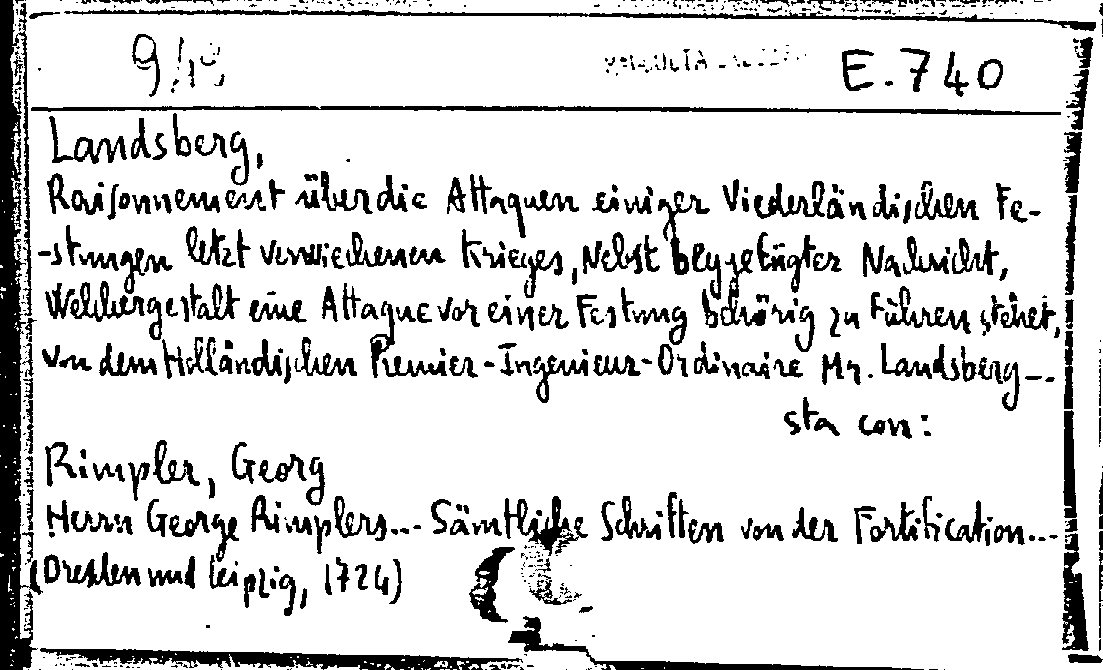 E.740
Landsberg,
Raisonnement über die Attaquen einiger Niederländischen Fe-
-stungen letzt verwiechenen Krieges, Nebst beygefügter Nachricht,
Welchergestalt eine Attaque vor einer Festung behörig zu führen stehet,
von dem Holländischen Premier-Ingenieur-Ordinaire Mr. Landsberg...
sta con:
Rimpler, Georg
Herrn George Rimplers... Sämtliche Schriften von der Fortification...
(Dresden und Leipzig, 1724)